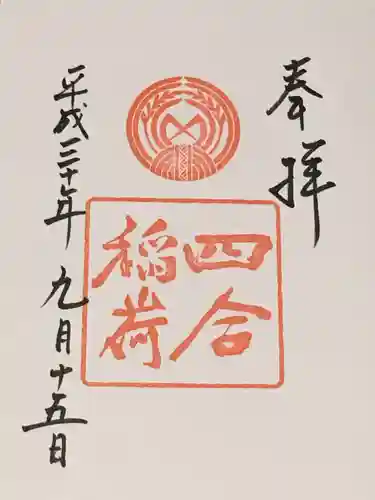 奉拝
四合
稲荷
平成三十年九月十五日